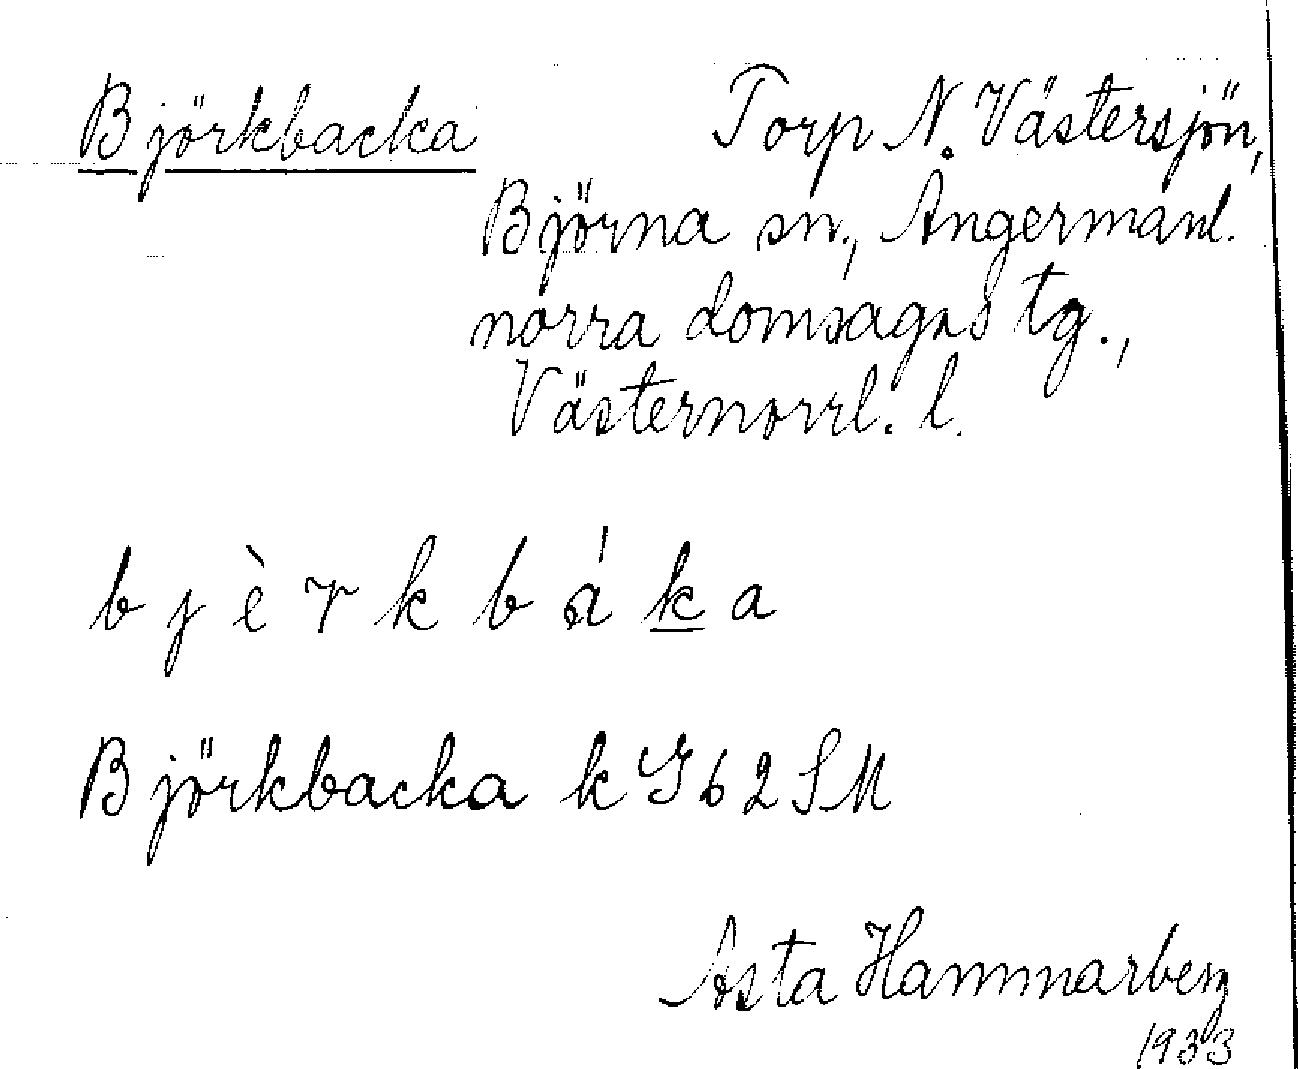 Björkbacka Torp N. Västersjön,
Björna sn., Ångermanl.
norra domsagas tg.,
Västernorrl. l.
b j è r k b á k a
Björkbacka k G b 2 SM
Asta Hammarberg
1933